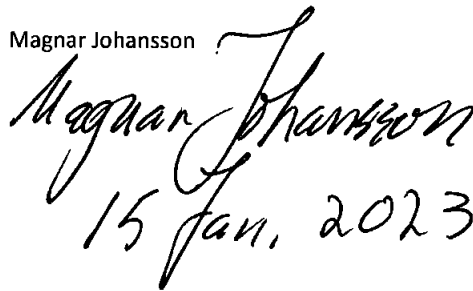 Magnar Johansson
Magnar Johansson
15 Jan. 2023